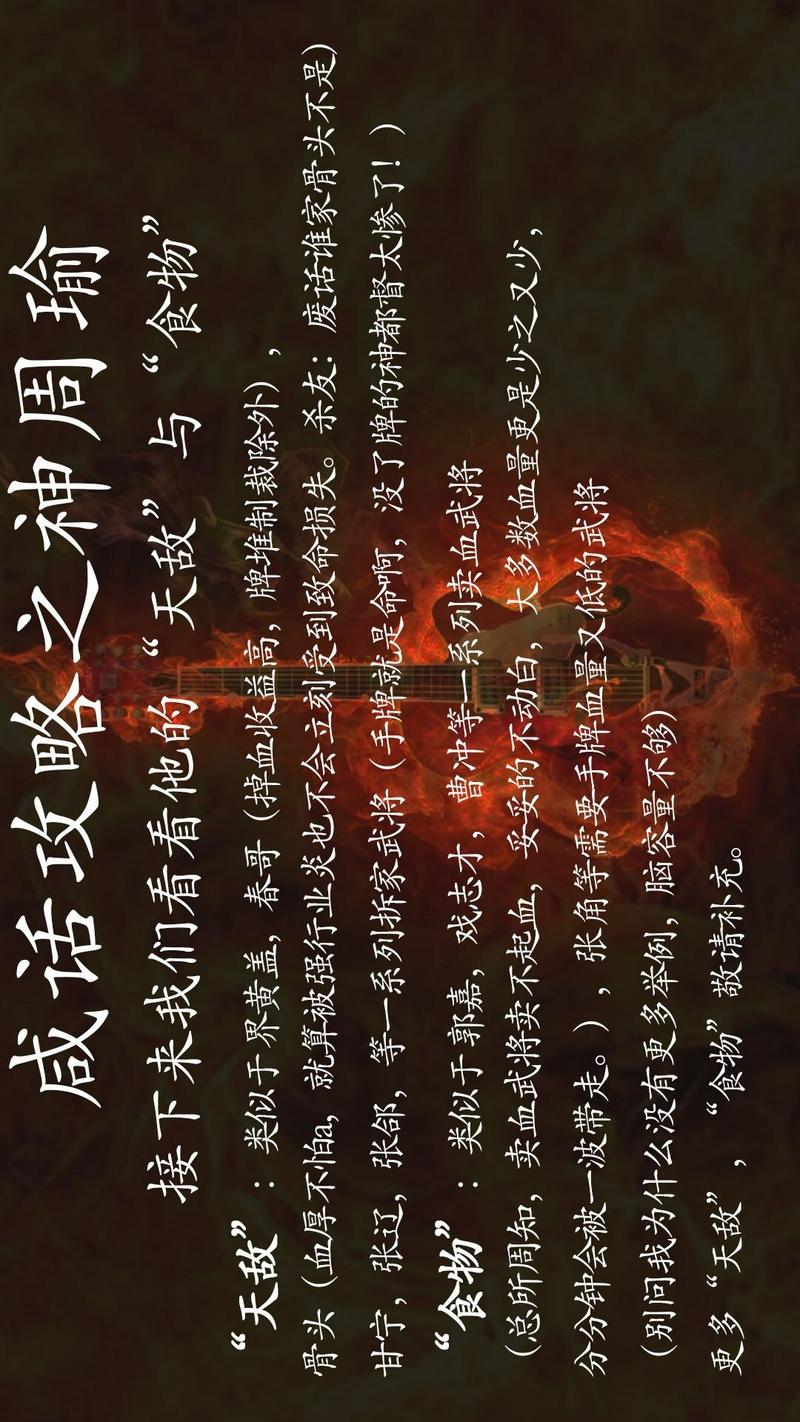 咸话攻略之神周瑜
接下来我们看看他的“天敌”与“食物”
“天敌”：类似于界黄盖，春哥（掉血收益高，牌堆制裁除外），
骨头（血厚不怕a，就算被强行业炎也不会立刻受到致命损失。杀友：废话谁家骨头不是）
甘宁，张辽，张郃，等一系列拆家武将（手牌就是命啊，没了牌的神都督太惨了！）
“食物”：类似于郭嘉，戏志才，曹冲等一系列卖血武将
（总所周知，卖血武将卖不起血，妥妥的不动白，大多数血量更是少之又少，
分分钟会被一波带走。），张角等需要手牌血量又低的武将
（别问我为什么没有更多举例，脑容量不够）
更多“天敌”，“食物”敬请补充。